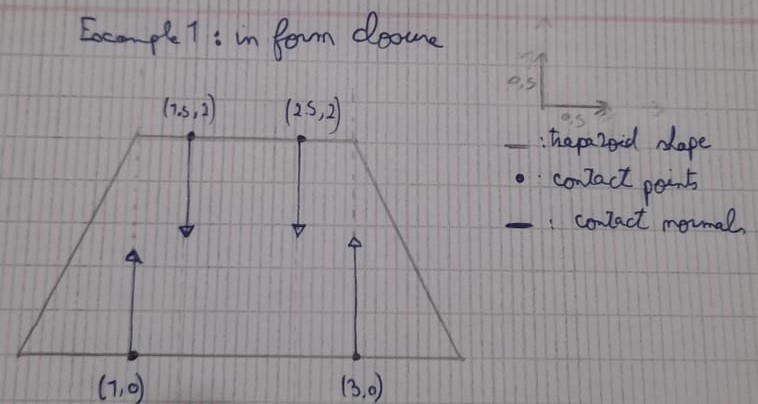 Example 1 : in form closure
(1.5, 2)
(2.5, 2)
0,5
0,5
: trapazoid shape
: contact points
: contact normals
(1,0)
(3,0)